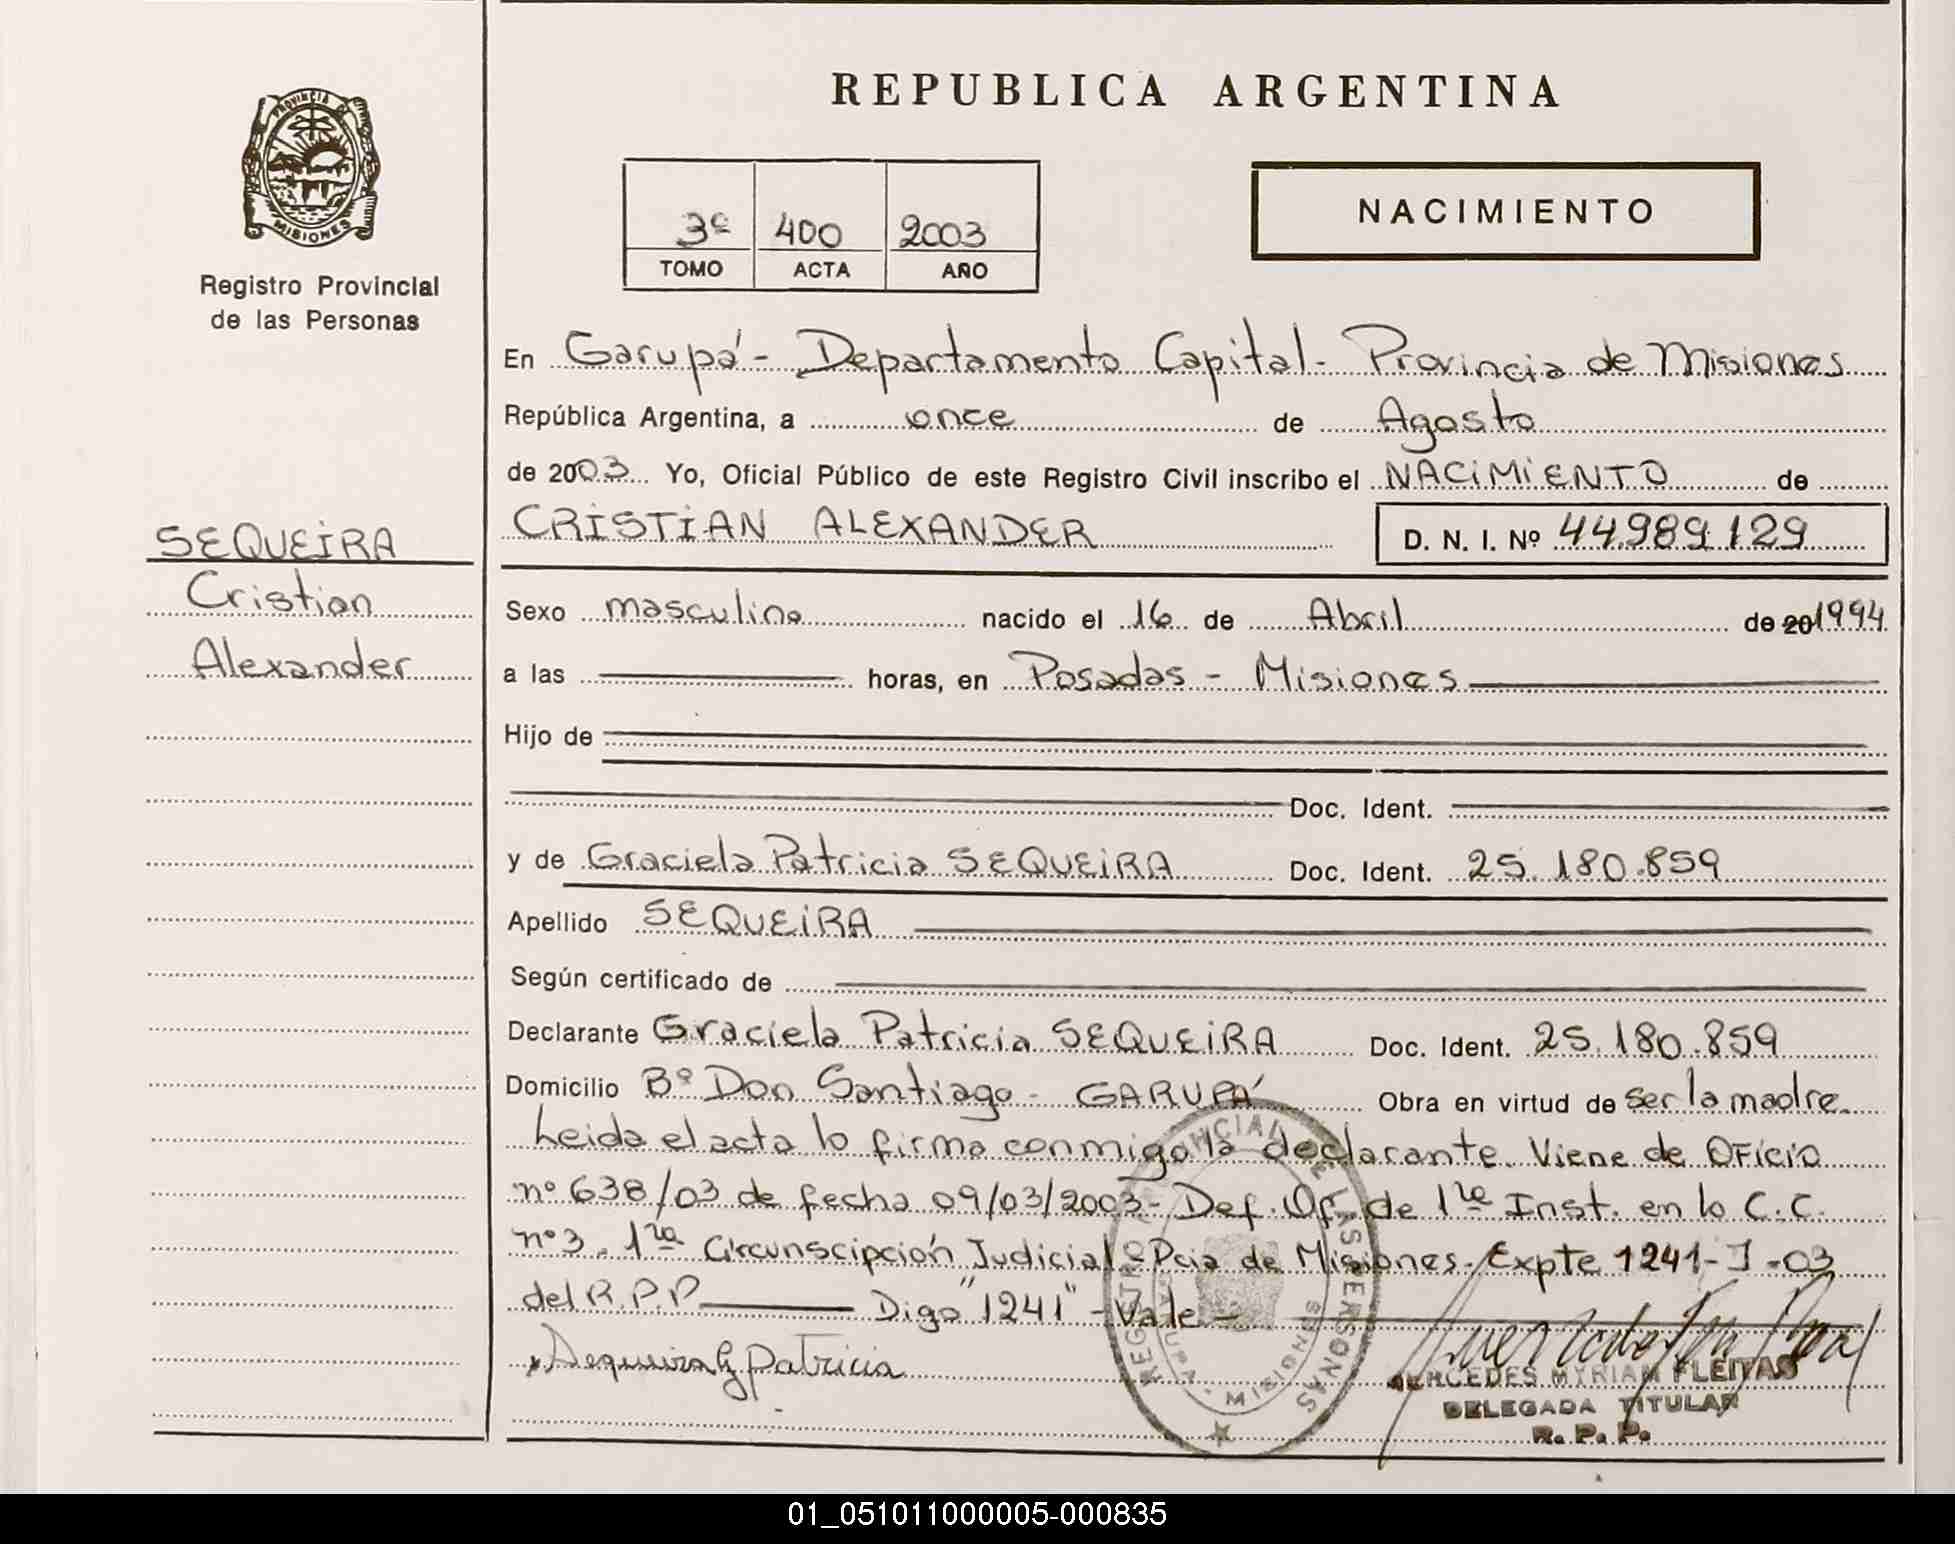 REPUBLICA ARGENTINA
PROVINCIA DE
MISIONES
Registro Provincial
de las Personas
3º 400 2003
TOMO ACTA AÑO
NACIMIENTO
En Garupá - Departamento Capital - Provincia de Misiones
República Argentina, a once de Agosto
de 2003 Yo, Oficial Público de este Registro Civil inscribo el NACIMIENTO de
CRISTIAN ALEXANDER D. N. I. Nº 44.989.129
SEQUEIRA
Cristian
Alexander
Sexo masculino nacido el 16 de Abril de 20 1994
a las horas, en Posadas - Misiones
Hijo de
Doc. Ident.
y de Graciela Patricia SEQUEIRA Doc. Ident. 25.180.859
Apellido SEQUEIRA
Según certificado de
Declarante Graciela Patricia SEQUEIRA Doc. Ident. 25.180.859
Domicilio Bº Don Santiago - GARUPÁ Obra en virtud de ser la madre.
Leida el acta lo firma conmigo la declarante. Viene de Oficio
nº 638/03 de fecha 09/03/2003 - Def. Of. de 1ra Inst. en lo C.C.
nº 3. 1ra Circunscipción Judicial - Pcia de Misiones. Expte 1241-J-03
del R.P.P. Digo "1241" - Vale -
Sequeira G Patricia
MERCEDES MYRIAM FLEITAS
DELEGADA TITULAR
R. P. P.
REGISTRO PROVINCIAL DE LAS PERSONAS
GARUPA - MISIONES
01_051011000005-000835